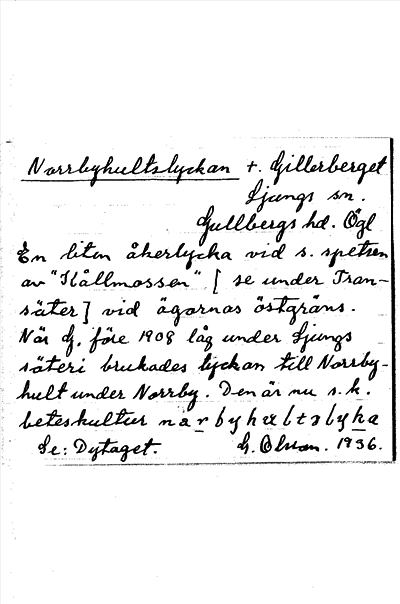 Norrbyhultslyckan t. Gillerberget
Ljungs sn.
Gullbergs hd. Ögl
En liten åkerlycka vid s. spetsen
av "Kållmossen" [ se under Tran-
säter ] vid ägornas östgräns.
När G. före 1908 låg under Ljungs
säteri brukades lyckan till Norrby-
hult under Norrby. Den är nu s.k.
beteskultur
Se: Dytaget. G. Olsson. 1936.